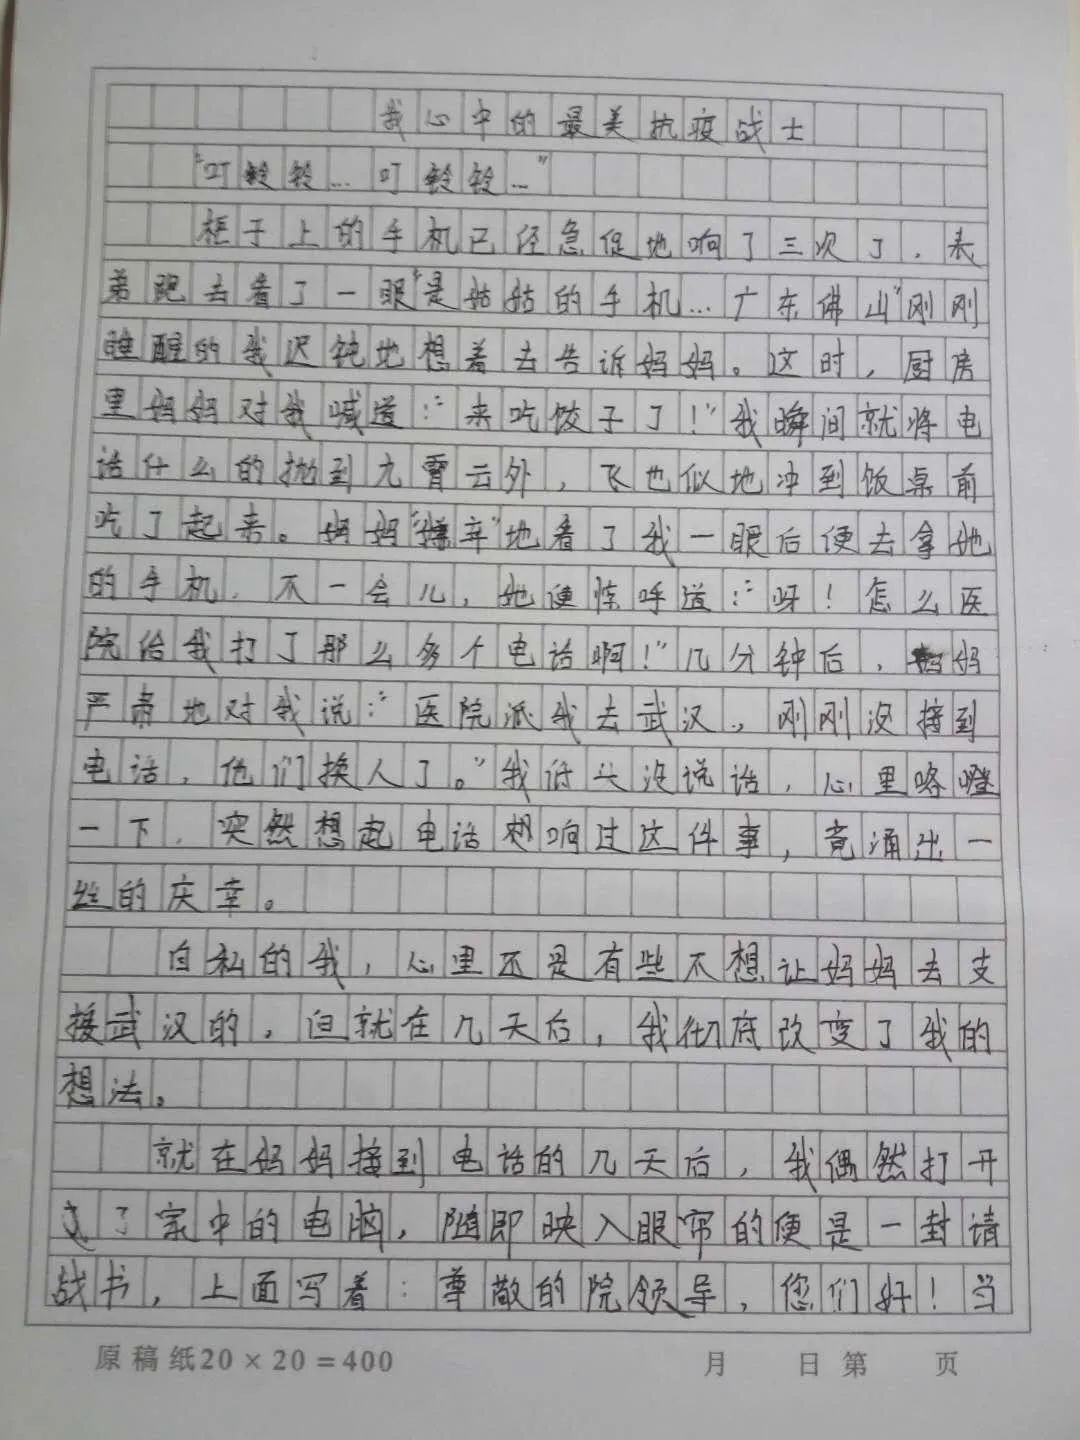 我心中的最美抗疫战士
“叮铃铃…叮铃铃…”
柜子上的手机已经急促地响了三次了，表
弟跑去看了一眼“是姑姑的手机…广东佛山”刚刚
睡醒的我迟钝地想着去告诉妈妈。这时，厨房
里妈妈对我喊道：“来吃饺子了！”我瞬间就将电
话什么的抛到九霄云外，飞也似地冲到饭桌前
吃了起来。妈妈“嫌弃”地看了我一眼后便去拿她
的手机，不一会儿，她便惊呼道：“呀！怎么医
院给我打了那么多个电话啊！”几分钟后，妈妈
严肃地对我说：“医院派我去武汉，刚刚没接到
电话，他们换人了。”我低头没说话，心里咯噔
一下，突然想起电话响过这件事，竟涌出一
丝的庆幸。
自私的我，心里还是有些不想让妈妈去支
援武汉的，但就在几天后，我彻底改变了我的
想法。
就在妈妈接到电话的几天后，我偶然打开
了家中的电脑，随即映入眼帘的便是一封请
战书，上面写着：尊敬的院领导，您们好！当
原稿纸20×20=400 月 日第 页